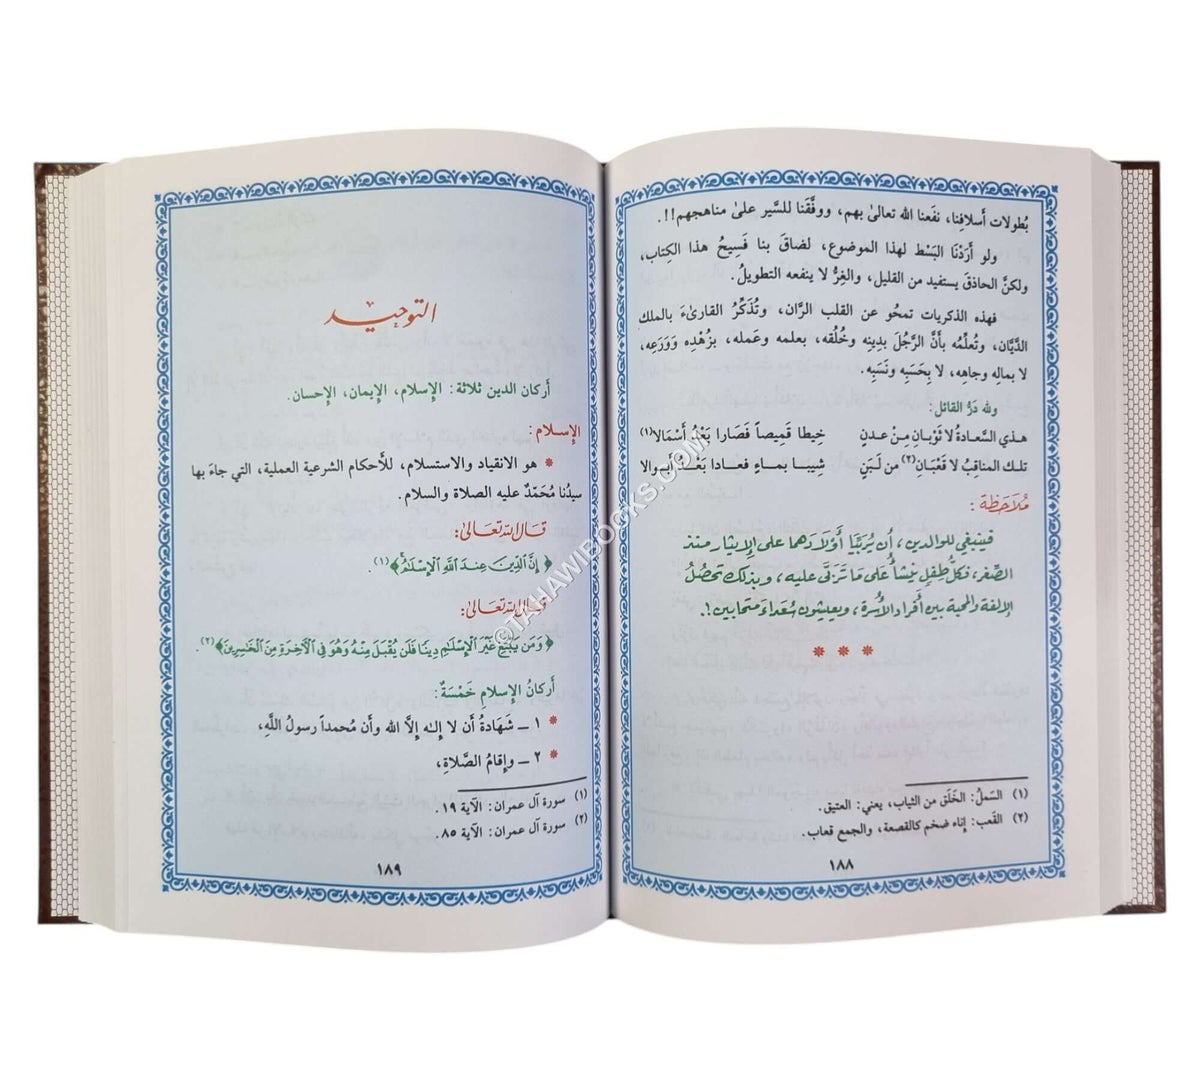 بُطولات أَسلافِنا، نفَعنا الله تعالىٰ بهم، ووفَّقَنا للسَّير علىٰ مناهجهم!!.
ولو أَرَدْنَا البَسْط لهذا الموضوع، لضاقَ بنا فَسِيحُ هذا الكِتاب،
ولكنَّ الحاذقَ يستفيد من القليل، والغِرُّ لا ينفعه التطويلُ.
فهذه الذكريات تمحُو عن القلب الرَّان، وتُذكِّرُ القارىءَ بالملك
الدَّيَّان، وتُعلِّمُه بأَنَّ الرَّجُلَ بدِينِه وخُلُقه، بعلمه وعَمله، بزُهْدِه وَوَرَعِه،
لا بماله وجاهِه، لا بِحَسَبِه ونَسَبِه.
ولله دَرُّ القائل:
هـذي السَّعادةُ لا ثَوْبانِ مِنْ عدنٍ خِيطا قَمِيصاً فَصَارا بَعْدُ أَسْمَالا(١)
تلـك المناقِبُ لا قَعْبَانِ(٢) من لَبَنٍ شِيبـا بمـاءٍ فعـادا بَعْـدُ أَبـوالا
مُلَاحَظَة :
فينبغي للوالدين، أَن يُرَبِّيَا أَوْلَادَهما على الإِيثار منذ
الصِّغر، فكلُّ طِفلٍ ينشأُ على مَا تَرَبَّى عليه، وبذلك تحصُلُ
الإِلفة والمحبة بين أَفراد الأُسرة، ويعيشون سُعَداءَ متحابين!.
* * *
(١) السَّملُ: الخَلَق من الثياب، يعني: العتيق.
(٢) القَعب: إناء ضخم كالقصعة، والجمع قعاب.
١٨٨
التوحيد
أَركان الدين ثلاثة: الإِسلام، الإِيمان، الإِحسان.
الإِسلام:
* هو الانقياد والاستسلام، للأَحكام الشرعية العملية، التي جاءَ بها
سيدُنا مُحَمّدٌ عليه الصلاة والسلام.
قال الله تعالىٰ:
﴿إِنَّ الدِّينَ عِندَ اللَّهِ الْإِسْلَٰمُ﴾(١).
قال الله تعالىٰ:
﴿وَمَن يَبْتَغِ غَيْرَ الْإِسْلَٰمِ دِينًا فَلَن يُقْبَلَ مِنْهُ وَهُوَ فِي الْآخِرَةِ مِنَ الْخَٰسِرِينَ﴾(٢).
أَركانُ الإِسلامِ خَمْسَةٌ:
* ١ ـ شَهَادَةُ أَن لا إِلٰه إِلَّا الله وأَن مُحمداً رسولُ اللَّهِ،
* ٢ ـ وإِقامُ الصَّلاةِ،
(١) سورة آل عمران: الآية ١٩.
(٢) سورة آل عمران: الآية ٨٥.
١٨٩
©TAHAWIBOOKS.COM